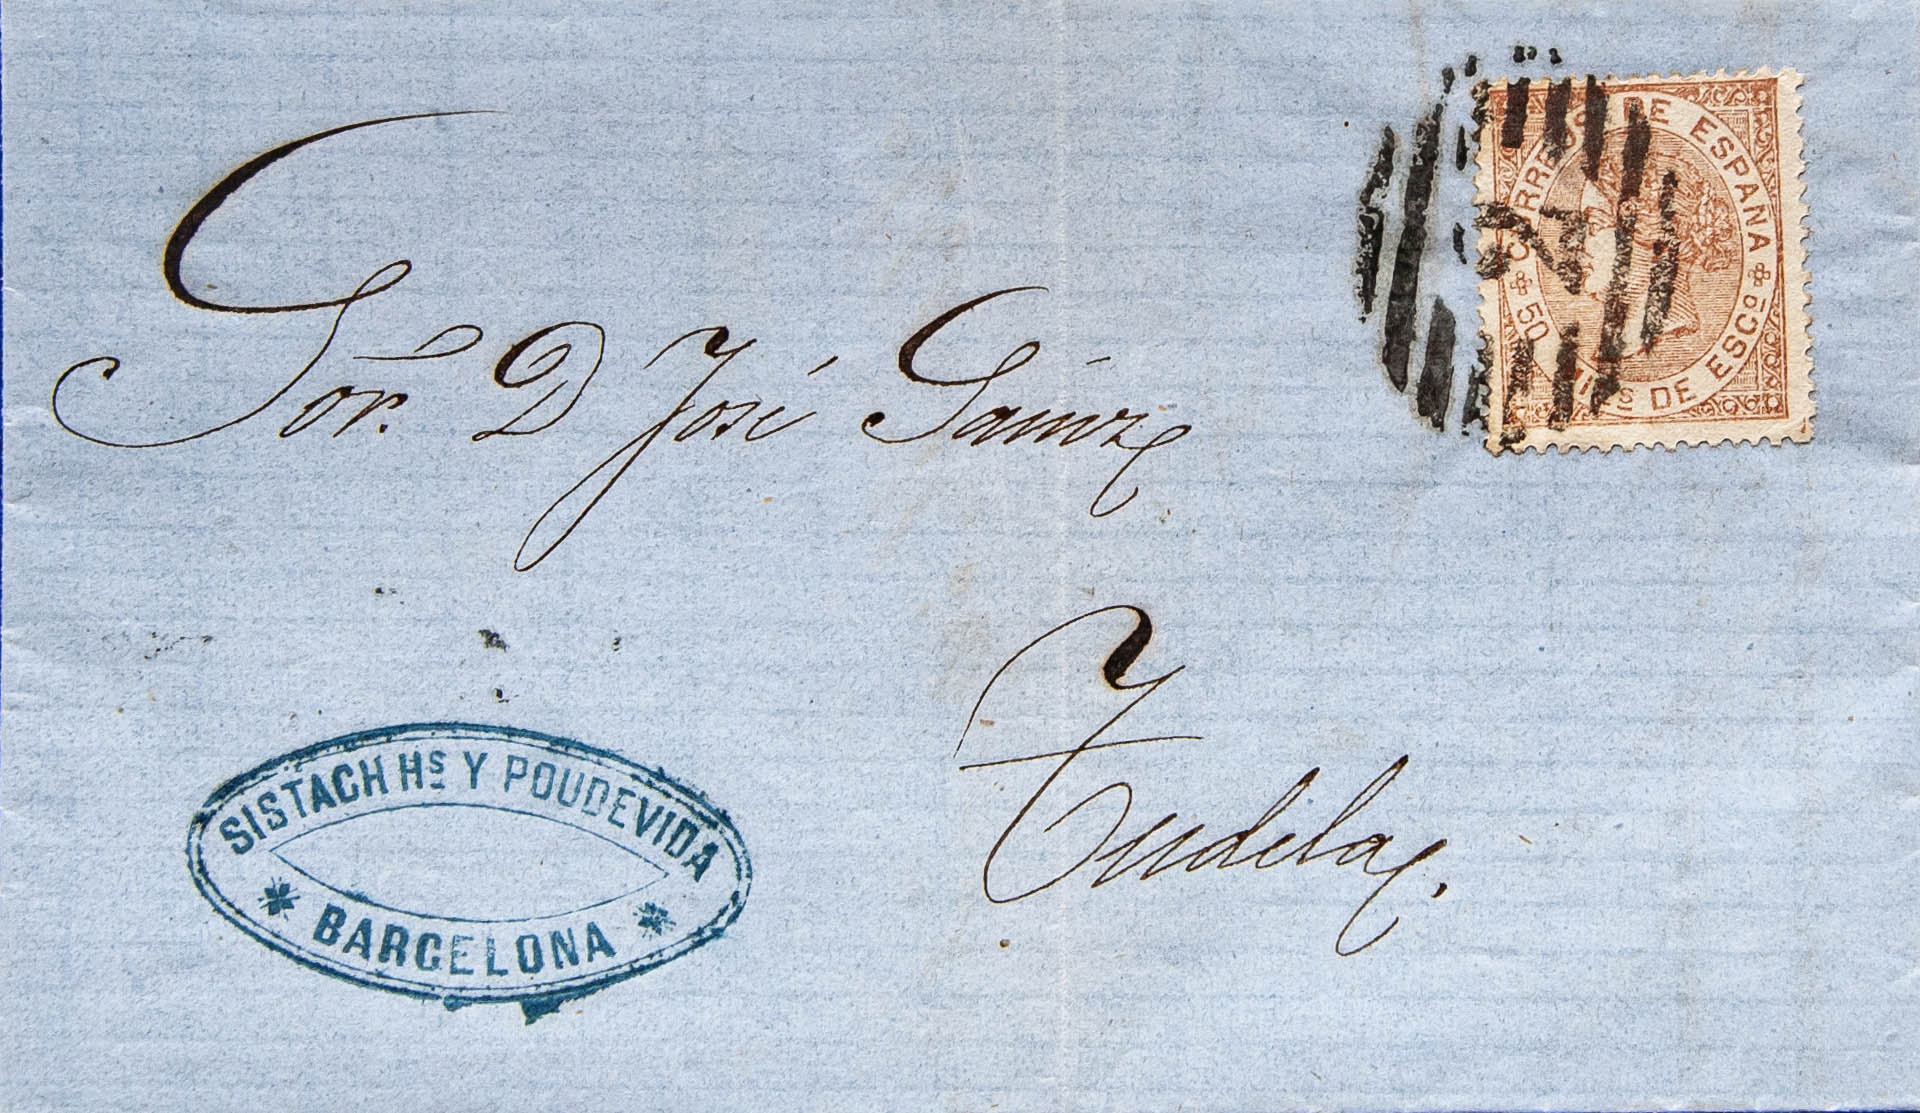 CORREOS DE ESPAÑA
50 MILS DE ESCO
2
Sor. D José Sainz
Tudela.
SISTACH HS Y POUDEVIDA
BARCELONA